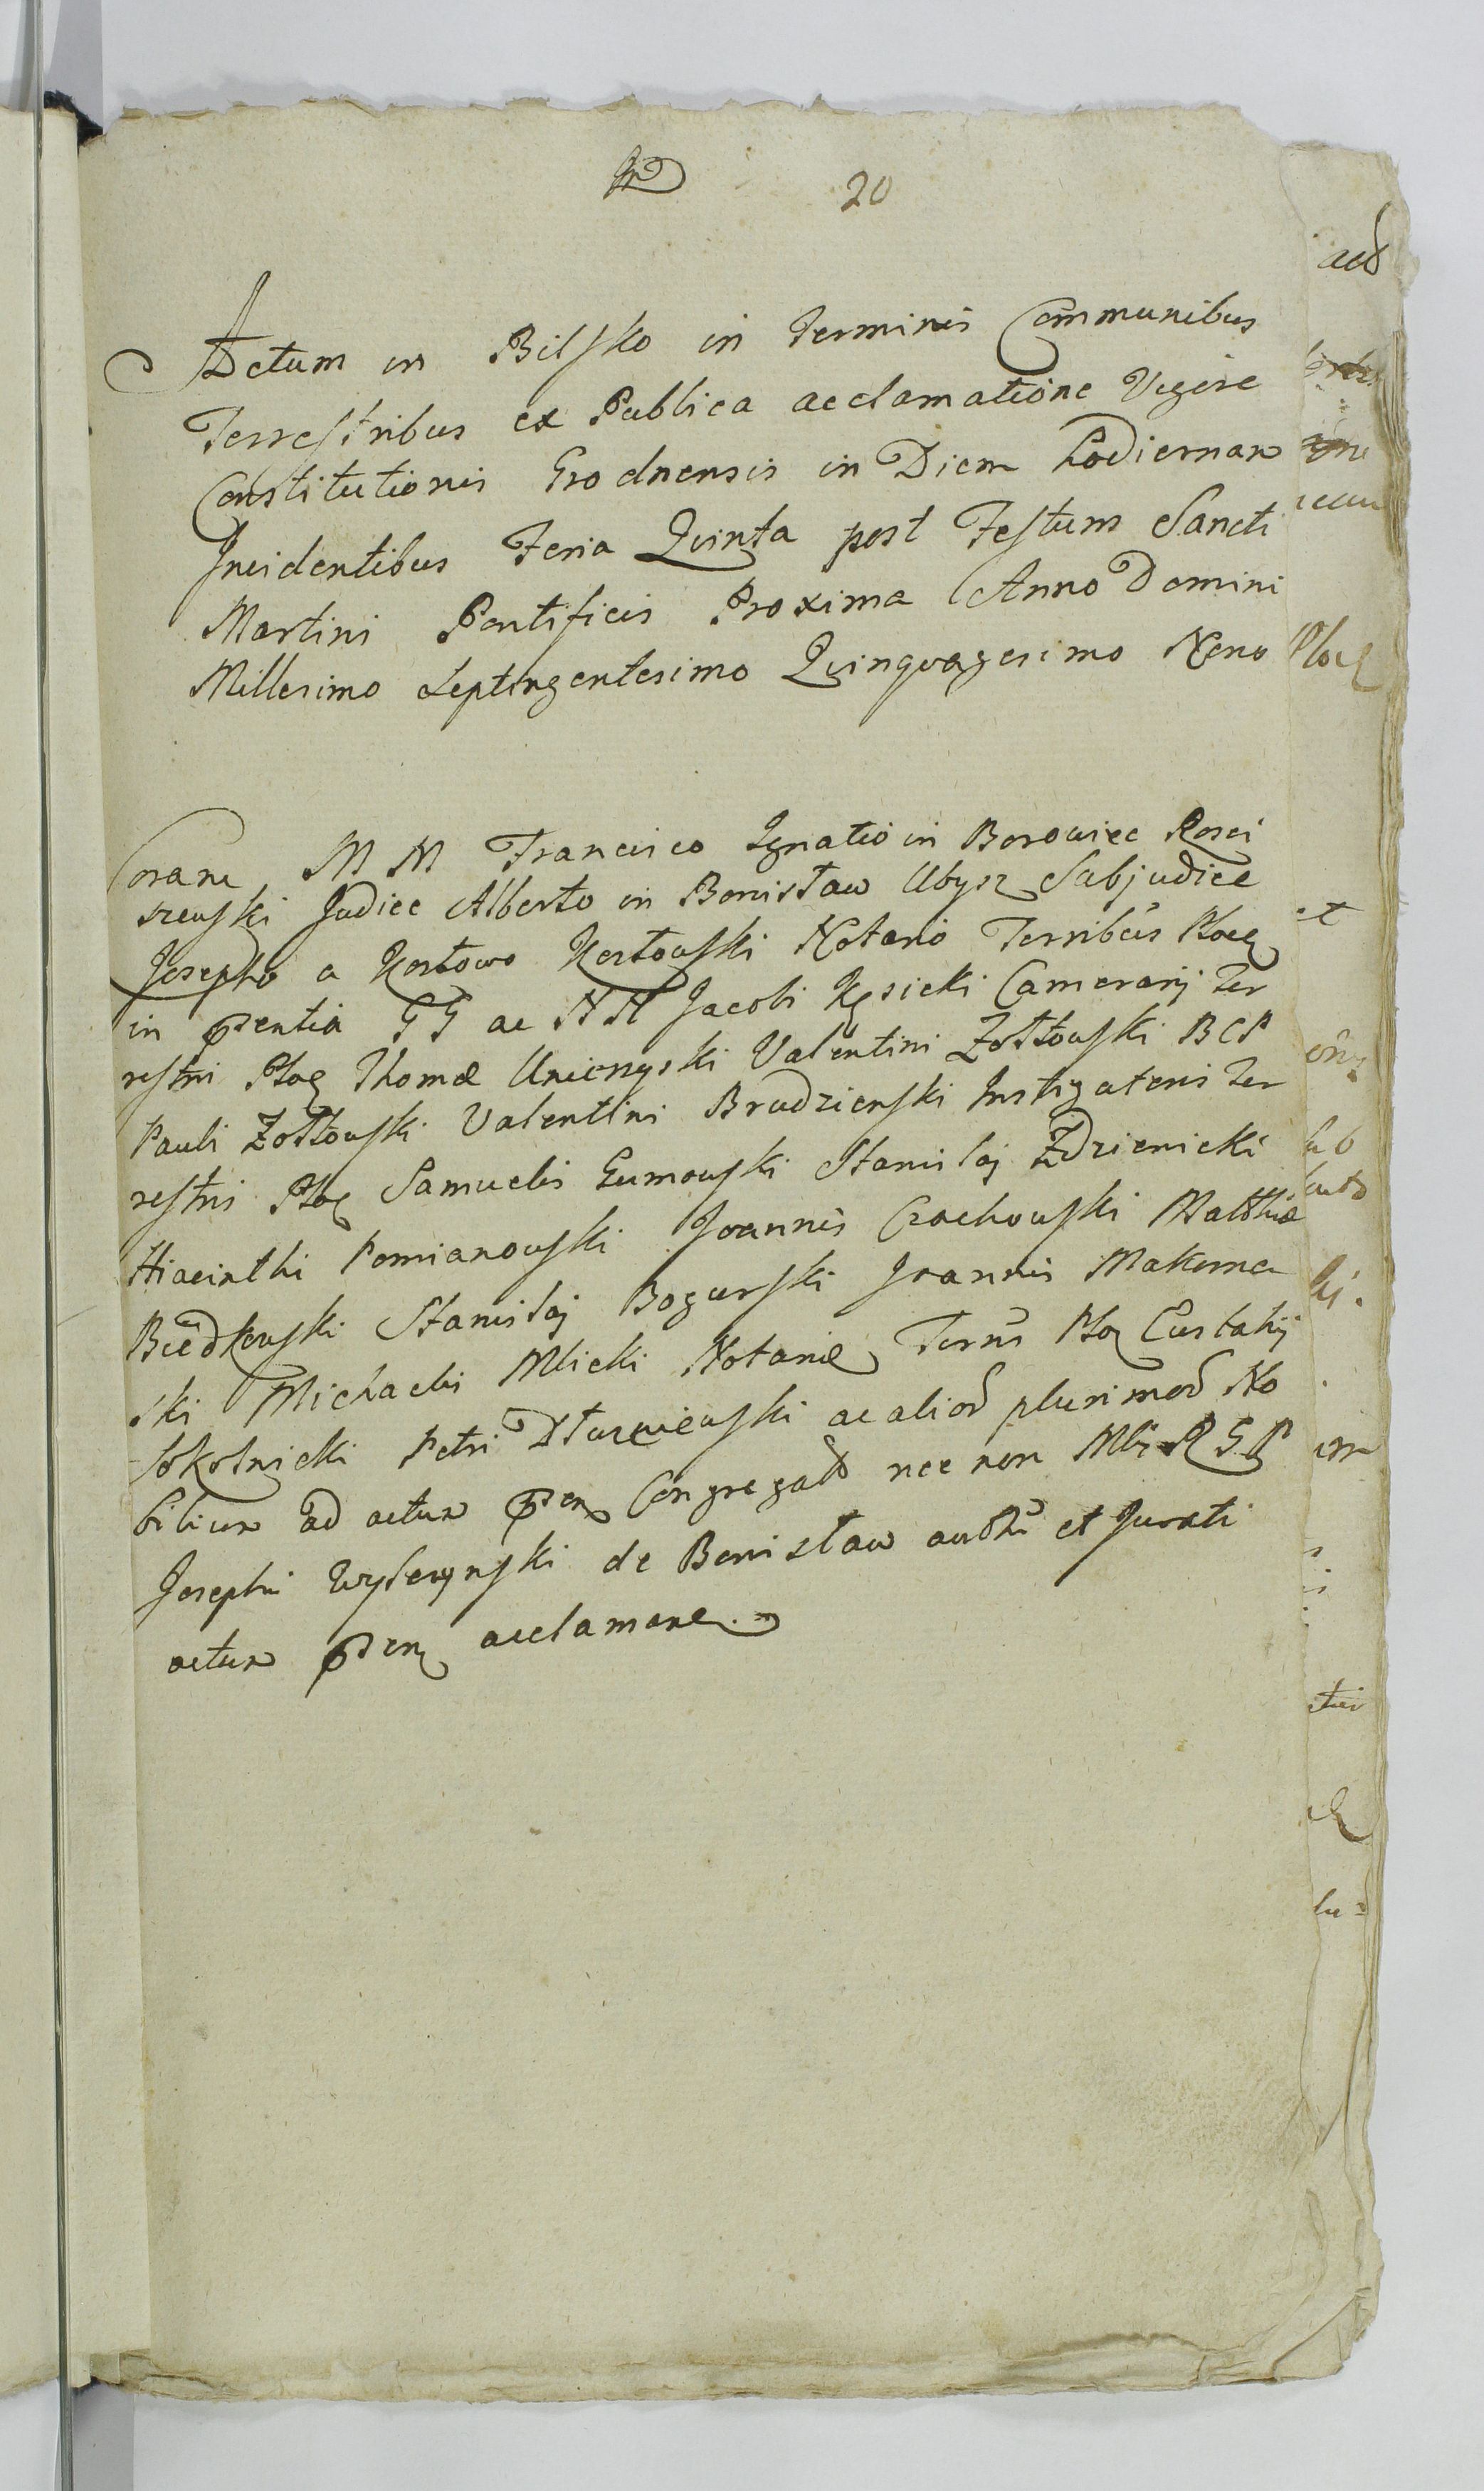 20
Actum in Bilsko in Terminis Communibus
Terrestribus ex Publica acclamatione Vigore
Constitutionis Grodnensis in Diem hodiernam
Incidentibus Feria Quinta post Festum Sancti
Martini Pontificis Proxima Anno Domini
Millesimo Septingentesimo Quinquagesimo Nono
Coram M M Francisco Ignatio in Borowice Kosci
szewski Judice Alberto in Bonisław Ubysz Subjudice
Josepho a Kostowo Kostowski Notario Terribus Ploc
in pntia G G ac N N Jacobi Kęsicki Camerarij Ter
restri Ploc Thomæ Unierzyski Valentini Zołtowski B C P
Pauli Zołtowski Valentini Brudzienski Instigatoris Ter
restri Ploc Samuelis Gumowski Stanislaj Zdzienicki
Hiacinthi Pomianowski Joannis Czachowski Matthiæ
Biedkowski Stanislaj Bogurski Joannis Makoma
ski Michaelis Mlicki Notariæ Terris Ploc Eustahij
Sokolnicki Petri Dłuzniewski ac aliod plurimod No
bilium ad actum pnn Congregatd nec non Mlis R G P
Josephi de Bonisław authi et Jurati
actum pnn acclamane